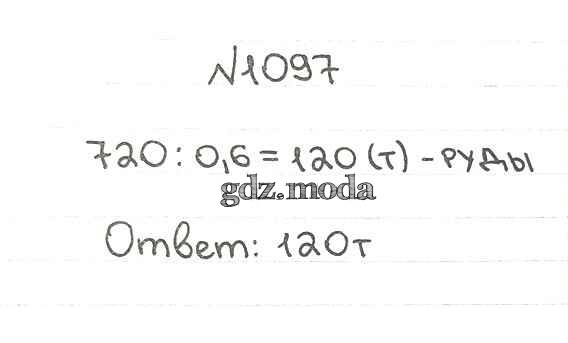 №1097
720 : 0,6 = 120 (т) - руды
gdz.moda
Ответ: 120т